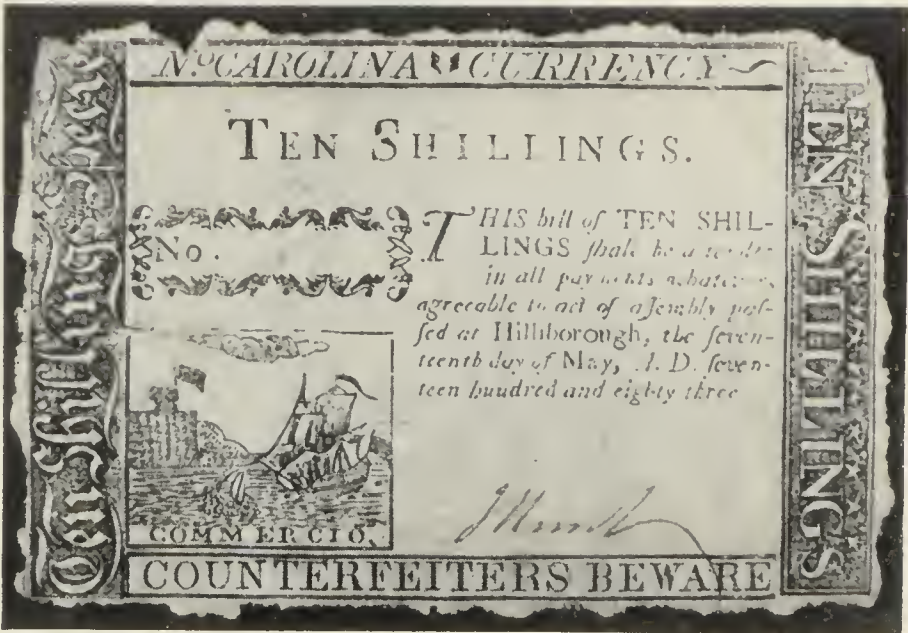 No CAROLINA CURRENCY
TEN SHILLINGS.
No.
THIS bill of TEN SHIL-
LINGS ſhall be a tender
in all payments whatever,
agreeable to act of aſſembly paſ-
ſed at Hillſborough, the ſeven-
teenth day of May, A. D. ſeven-
teen hundred and eighty three
COMMERCIO.
COUNTERFEITERS BEWARE
Ten Shillings
TEN SHILLINGS